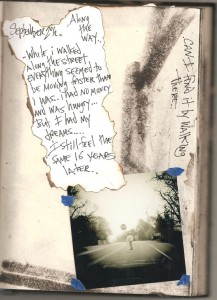 September 9th. Along
the
way.
While, i walked
along the street,
everything seemed to
be moving faster than
i was. i had no money
and was hungry...
But i had my
dreams....
I still feel the
same 16 years
later.
can't find it by walking
there...